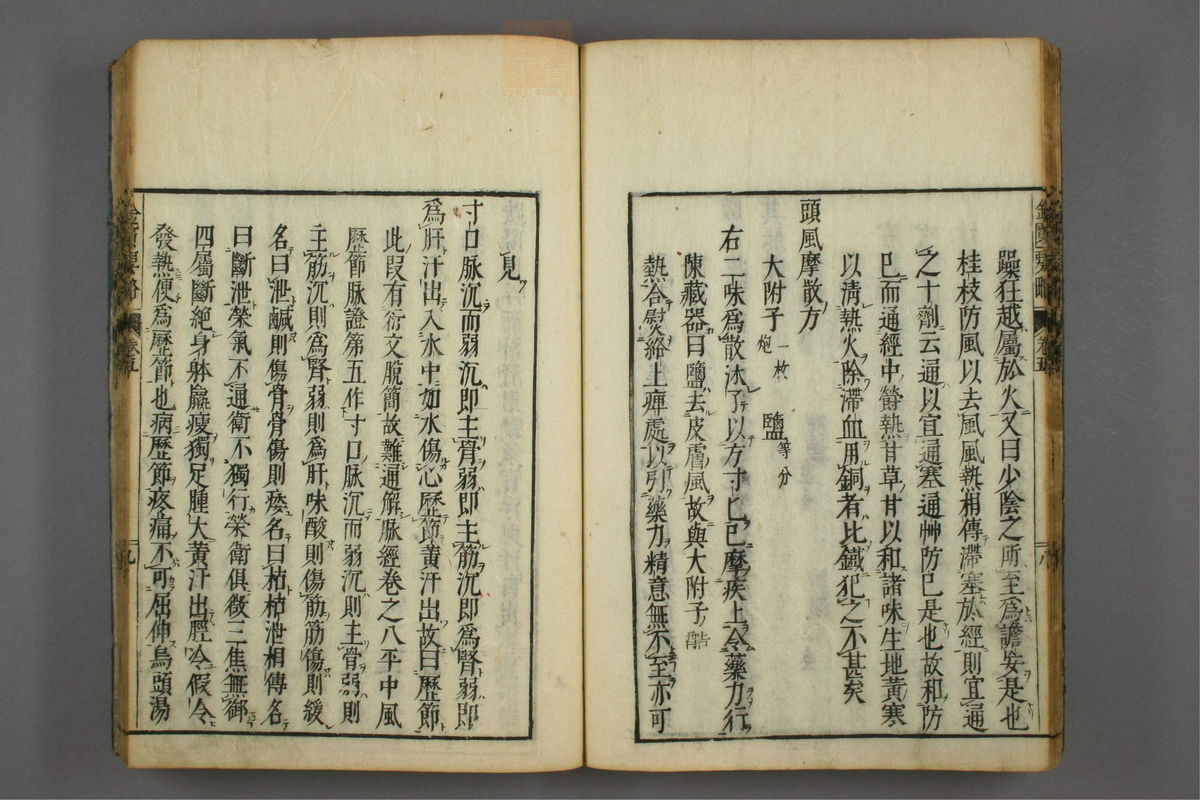 躁狂越屬於火又曰少陰之所至為譫妄是也
桂枝防風以去風風熱相傳滯塞於經則宜通
之十劑云通以宜通塞通艸防已是也故和防
已而通經中欝熱甘草甘以和諸味生地黃寒
以清熱火除滯血用銅者比鐵犯之不甚矣
頭風摩散方
大附子一枚炮 鹽等分
右二味為散沐了以方寸匕已摩疾上令藥力行
陳藏器曰鹽去皮膚風故與大附子酷
熱合熨絡上痺處以引藥力精意無不至亦可
見
寸口脉沉而弱沉即主骨弱即主筋沉即為腎弱即
為肝汗出入水中如水傷心歷節黃汗出故曰歷節
此叚有衍文脫簡故難通解脉經卷之八平中風
歷節脉證第五作寸口脉沉而弱沉則主骨弱則
主筋沉則為腎弱則為肝味酸則傷筋筋傷則緩
名曰泄鹹則傷骨骨傷則痿名曰枯枯泄相傳名
曰斷泄榮氣不通衛不獨行榮衛俱微三焦無御
四屬斷絕身躰羸瘦獨足腫大黃汗出脛冷假令
發熱便為歷節也病歷節疼痛不可屈伸烏頭湯